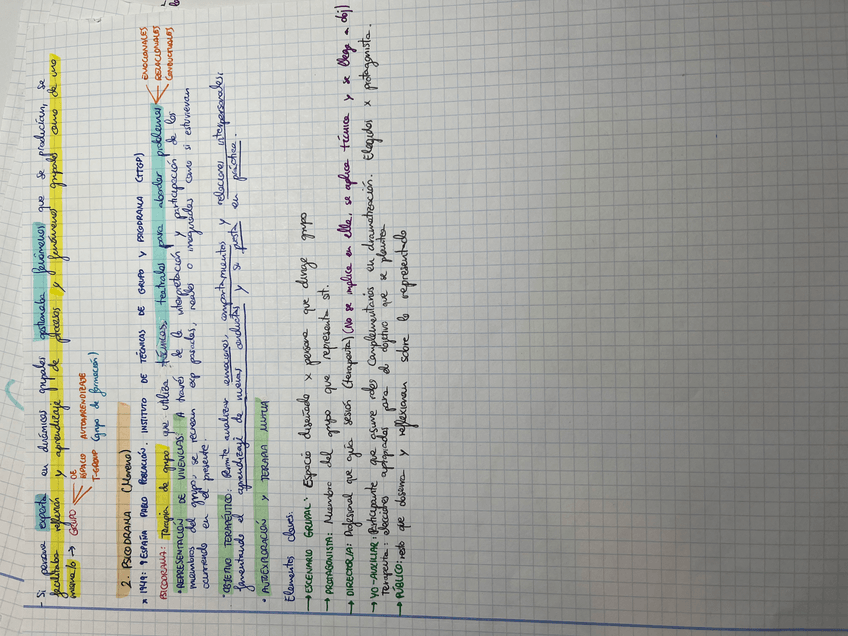 - Si persona experta en dinámicas grupales gestionaba fenómenos que se producían, se
facilitaba reflexión y aprendizaje de procesos y fenómenos grupales como de uno
mismo/s → GRUPO DE
ESPACIO AUTOAPRENDIZAJE
T-GROUP (grupo de formación)
2. PSICODRAMA (Moreno)
* 1949: ESPAÑA PABLO POBLACIÓN. INSTITUTO DE TÉCNICAS DE GRUPO Y PSICODRAMA (ITGP)
PSICODRAMA: Terapia de grupo que utiliza técnicas teatrales para abordar problemas
EMOCIONALES
RELACIONALES
CONDUCTUALES
• REPRESENTACIÓN DE VIVENCIAS: A través de la interpretación y participación de los
miembros del grupo, se recrean exp pasadas, reales o imaginadas como si estuvieran
ocurriendo en el presente.
• OBJETIVO TERAPÉUTICO: Permite analizar emociones, comportamientos y relaciones interpersonales;
fomentando el aprendizaje de nuevas conductas y se pueda en práctica.
• AUTOEXPLORACIÓN Y TERAPIA MUTUA
Elementos claves:
→ ESCENARIO GRUPAL: Espacio diseñado x persona que dirige grupo
→ PROTAGONISTA: Miembro del grupo que representa st.
→ DIRECTOR/A: Profesional que guía sesión (terapeuta) (No se implica en ella, se aplica técnica y se llega a obj)
→ YO-AUXILIAR: Participante que asume roles complementarios en dramatización. Elegidos x protagonista.
Terapeuta: elecciones apropiadas para el objetivo que se plantea
→ PÚBLICO: resto que observa y reflexionan sobre lo representado